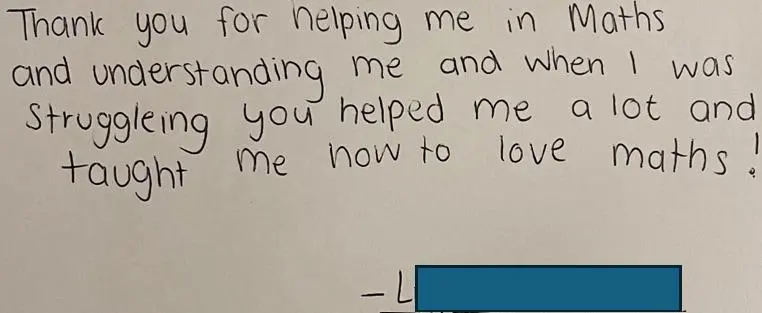 Thank you for helping me in Maths
and understanding me and when I was
Struggleing you helped me a lot and
taught me how to love maths!
- L